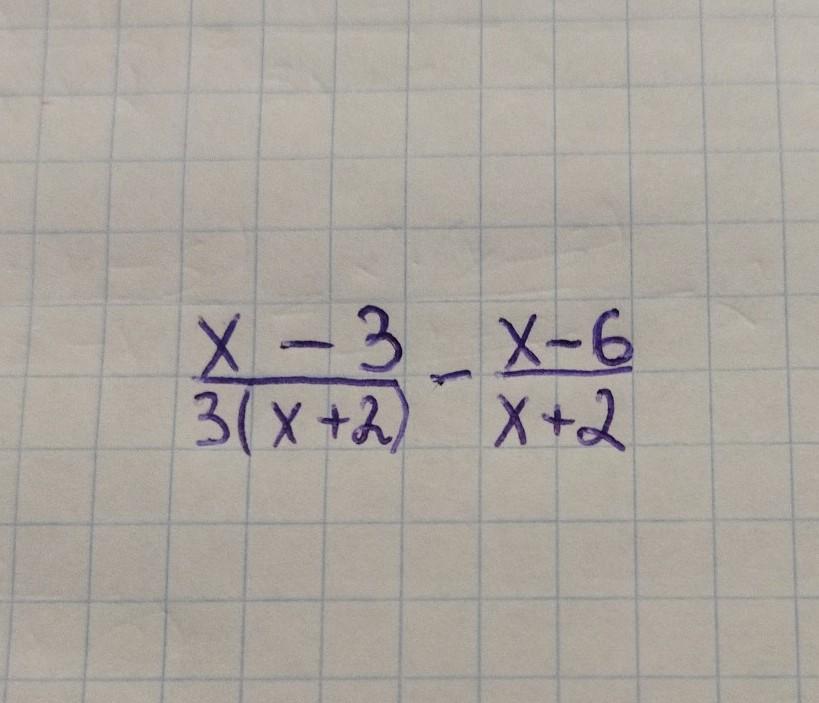 x - 3 / 3(x+2) - x-6 / x+2